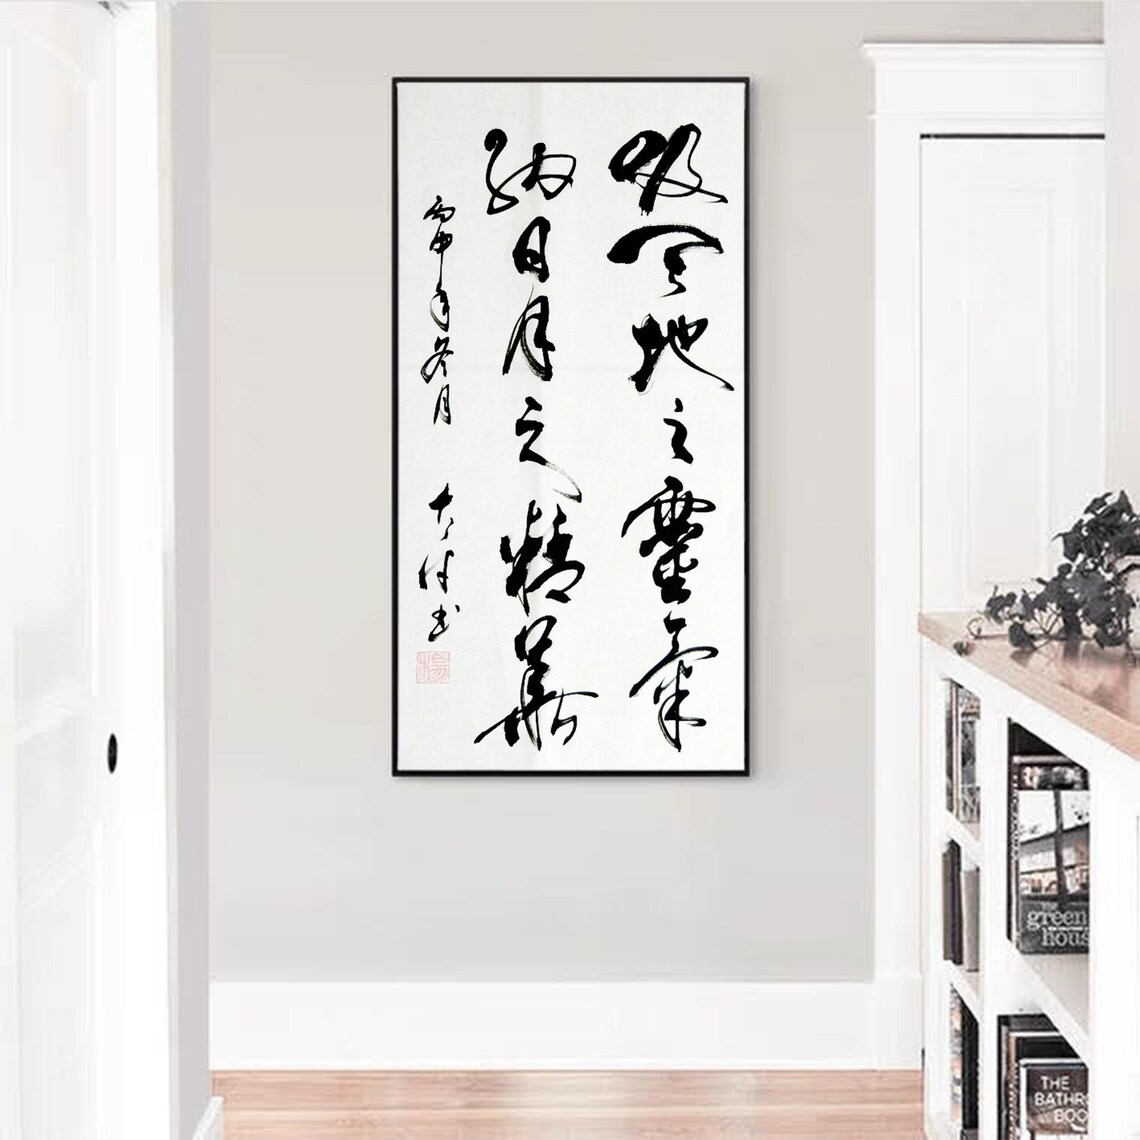 吸天地之靈氣
納日月之精華
丙申年冬月
大付书
the
green
hous
THE
BATHRO
BOO